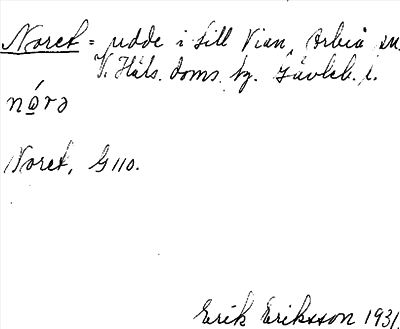 Noret = udde i Lill Vian, Arbrå sn.
V. Häls. doms. hg. Gävleb. l.
nóra
Noret, G 110.
Erik Eriksson 1931.